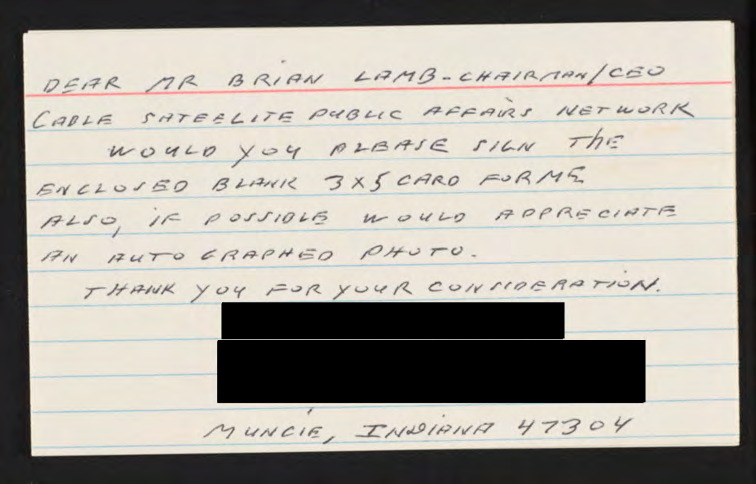 DEAR MR BRIAN LAMB-CHAIRMAN/CEO
CABLE SATEELITE PUBLIC AFFAIRS NETWORK
WOULD YOU PLEASE SIGN THE
ENCLOSED BLANK 3X5 CARD FOR ME
ALSO, IF POSSIBLE WOULD APPRECIATE
AN AUTOGRAPHED PHOTO.
THANK YOU FOR YOUR CONSIDERATION.
MUNCIE, INDIANA 47304